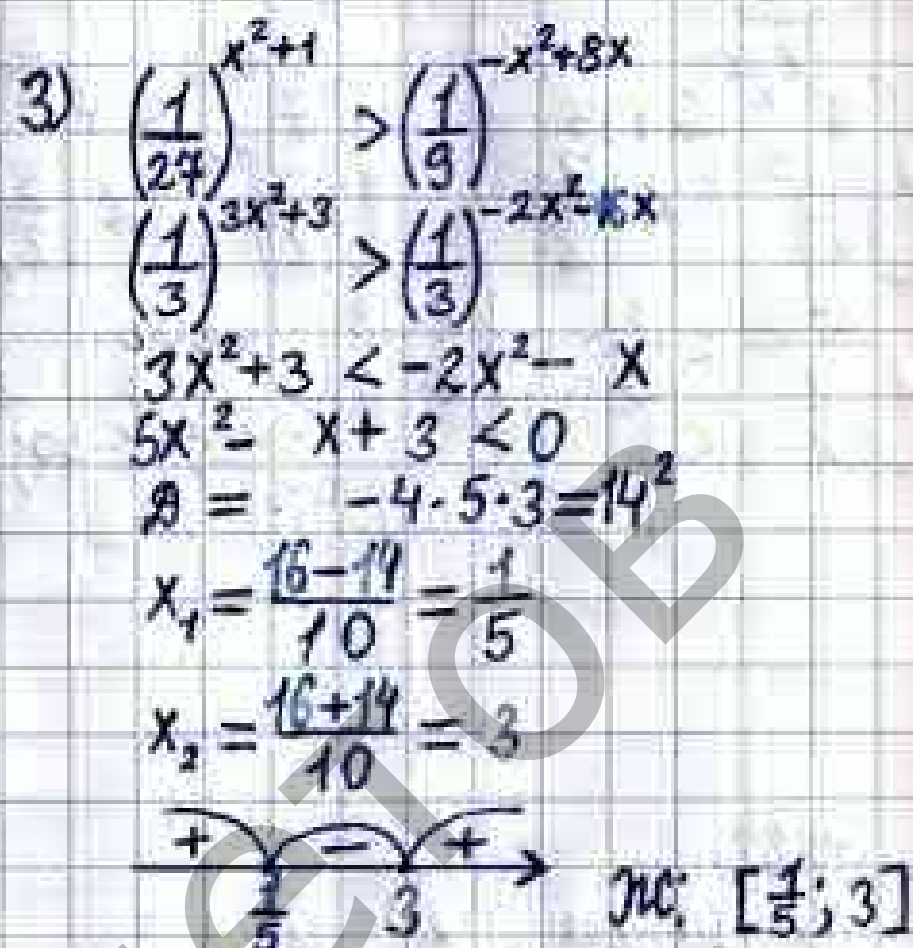 3) (1/27)^(x²+1) > (1/9)^(-x²+8x)
(1/3)^(3x²+3) > (1/3)^(-2x²-16x)
3x²+3 < -2x² - x
5x² - x + 3 < 0
D = -4·5·3 = 14²
x₁ = (16-14)/10 = 1/5
x₂ = (16+14)/10 = 3
+ - +
1/5 3 Ж: [1/5; 3]